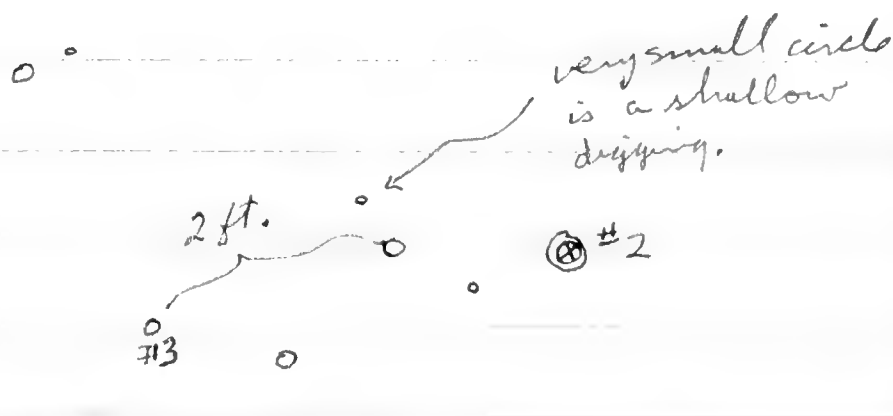 very small circle
is a shallow
digging.
2 ft.
#2
#3